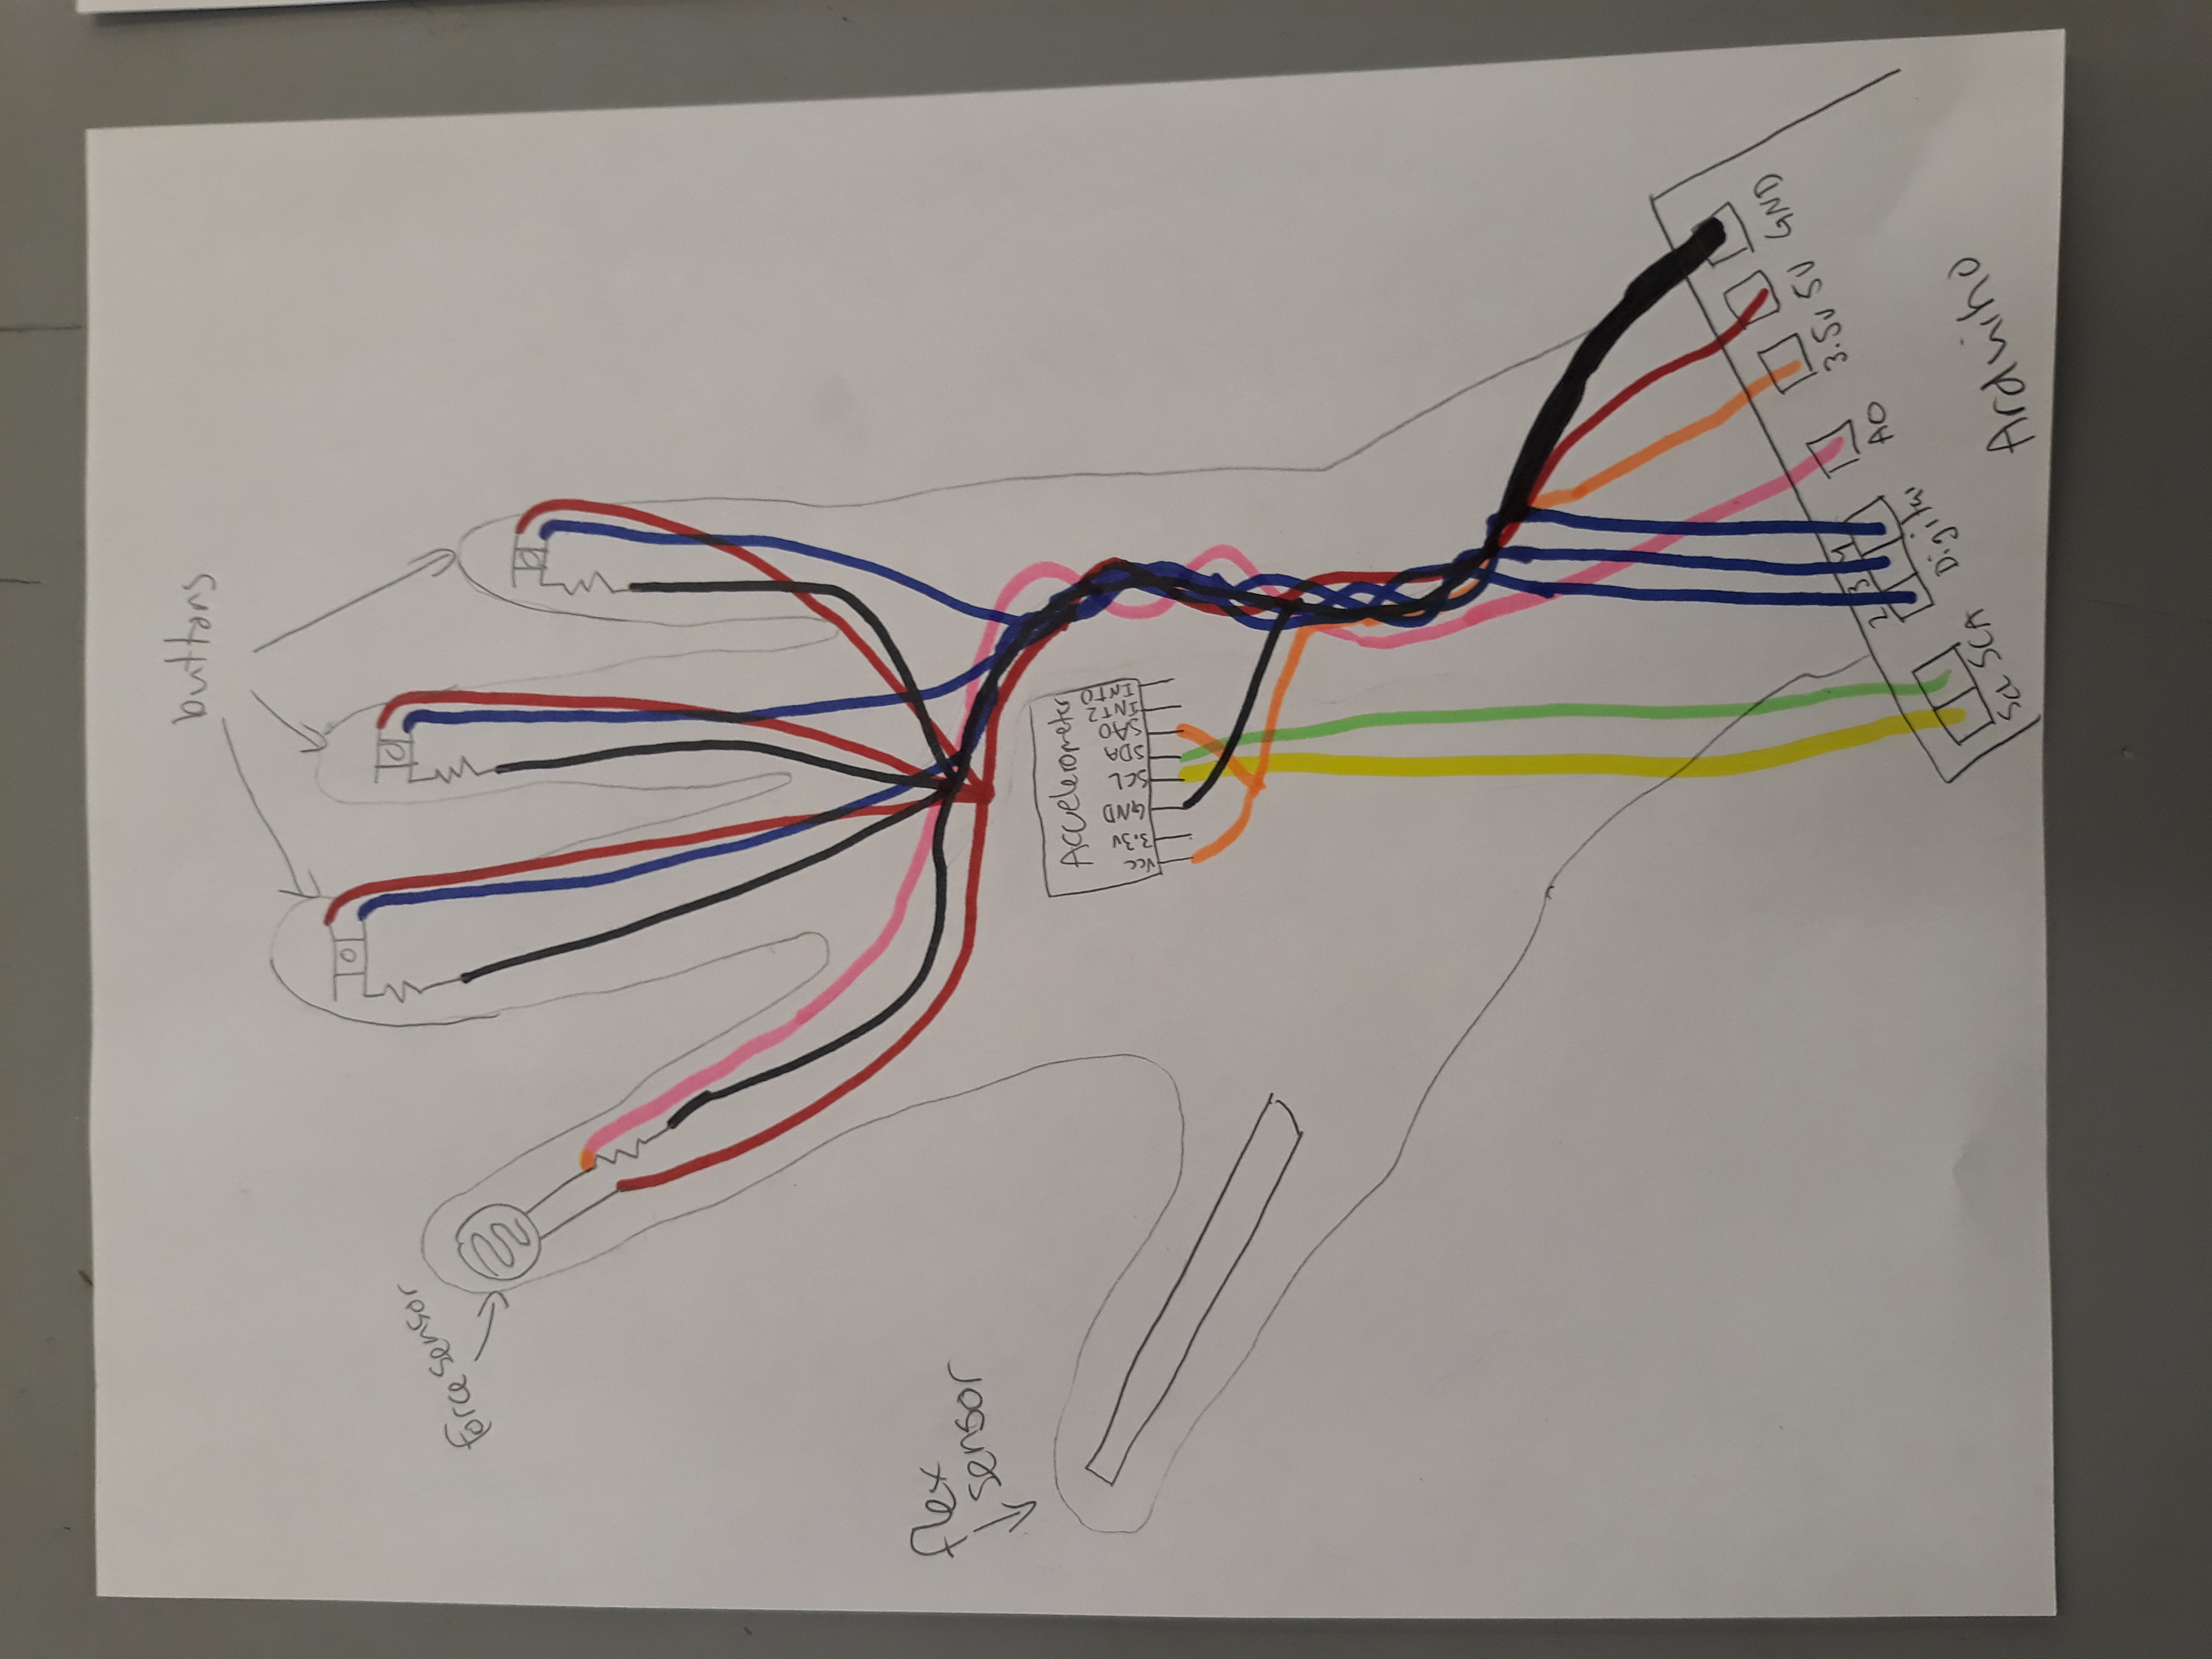 buttons
force sensor
flex
sensor
Accelerometer
Vcc
3.3v
GND
SCL
SDA
SAO
INT2
INTO
GND
5V
3.5V
AO
2 3 4
Digital
SCL SCA
Arduino